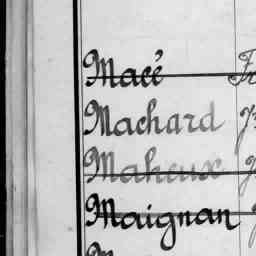 Macé
Machard
Maheux
Maignan